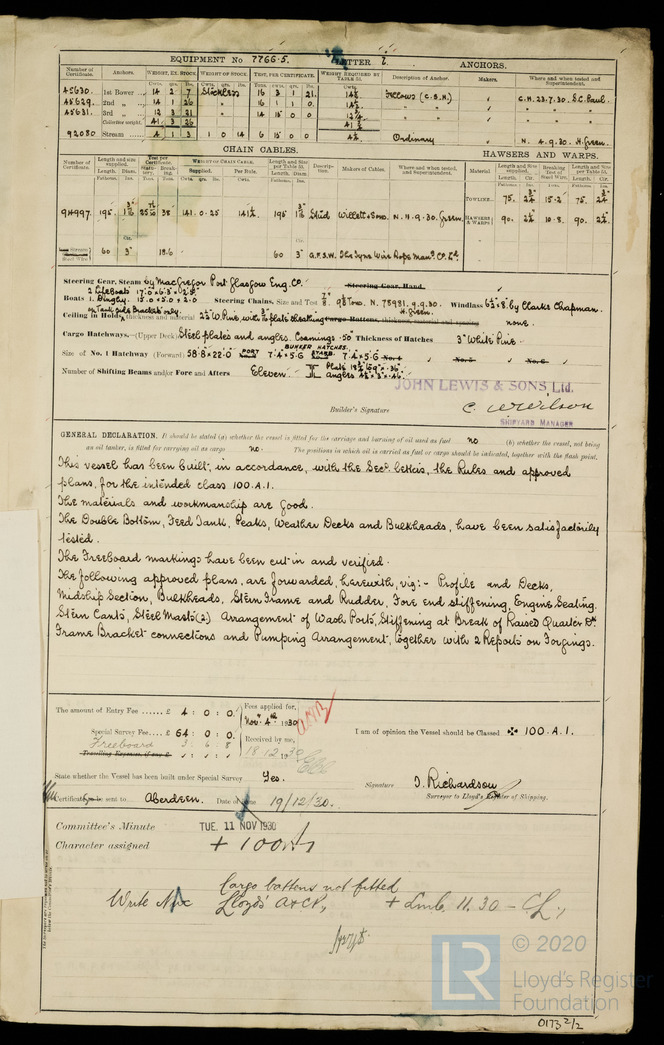 EQUIPMENT No 7766.5. LETTER ANCHORS.
Number of Certificate. Anchors. WEIGHT, EX. STOCK. WEIGHT OF STOCK. TEST, PER CERTIFICATE. WEIGHT REQUIRED BY TABLE 53. Description of Anchor. Makers. Where and when tested and Superintendent.
45630. 1st Bower 14 2 7 Stockless 16 3 1 21. 14¼ Fellows (C.S.H.) C.H. 23.7.30. S.C. Paul.
45629. 2nd 14 1 26 16 1 1 0. 14¼
45631. 3rd 12 3 21 14 15 0 0 12¼
Collective weight. 41. 3 26 41½
92080 Stream 4 1 3 1 0 14 6 15 0 0 4¼ Ordinary N. 4.9.30. H. Green.
CHAIN CABLES. HAWSERS AND WARPS.
94997. 195 1 3/16 25 38 141.0.25 141¼ 195 1 3/16 Stud Willett & Sons. N. 11.9.30. Green.
TOWLINE. 75. 2¾ 15.2 75. 2¾
HAWSERS & WARPS 90. 2¼ 10.8. 90. 2¼
60 3" 18.6 60 3" G.F.S.W. The Tyne Wire Rope Manf. Co. Ltd
Steering Gear, Steam by MacGregor Port Glasgow Eng. Co. Steering Gear, Hand
Boats 2 Lifeboats 17.0 x 6.3 x 2.5
1. Dinghy. 15.0 x 5.0 x 2.0 Steering Chains, Size and Test 7/8" 9 1/8 Tons. N. 78981. 9.9.30. H. Green. Windlass 6½ x 8" by Clarke Chapman.
on Tank side Brackets only.
Ceiling in Holds, thickness and material 2½ W. Pine, with plate sheathing Cargo Battens, thickness, material and spacing none.
Cargo Hatchways.—(Upper Deck) Steel plates and angles. Coamings .50 Thickness of Hatches 3" White Pine.
BUNKER HATCHES.
Size of No. 1 Hatchway (Forward) 58.8 x 22.0 PORT 7.4 x 5.6 STARB. 7.4 x 5.6 No. 4 No. 5 No. 6
Number of Shifting Beams and/or Fore and Afters Eleven. Plate 18½ to 9" x .36" angles 4½ x 3 x .46"
JOHN LEWIS & SONS Ltd.
Builder's Signature C. W Wilson
SHIPYARD MANAGER
GENERAL DECLARATION. It should be stated (a) whether the vessel is fitted for the carriage and burning of oil used as fuel no (b) whether the vessel, not being
an oil tanker, is fitted for carrying oil as cargo no. The positions in which oil is carried as fuel or cargo should be indicated, together with the flash point.
This vessel has been built, in accordance, with the Secy. letters, the Rules and approved
plans, for the intended class 100.A.1.
The materials and workmanship are good.
The Double Bottom, Feed Tank, Peaks, Weather Decks and Bulkheads, have been satisfactorily
tested.
The Freeboard markings have been cut in and verified.
The following approved plans, are forwarded, herewith, viz:- Profile and Decks,
Midship Section, Bulkheads, Stern Frame and Rudder, Fore end stiffening, Engine Seating.
Stern Cants, Steel Masts (2) Arrangement of Wash Ports, Stiffening at Break of Raised Quarter Dk
Frame Bracket connections and Pumping Arrangement, together with 2 Reports on Forgings.
The amount of Entry Fee ...... £ 4 : 0 : 0. Fees applied for, Nov. 4th 1930
Special Survey Fee.... £ 64 : 0 : 0. Received by me,
Freeboard 3 . 6 . 8 18.12.1930
Travelling Expenses, if any £
I am of opinion the Vessel should be Classed ✠ 100.A.1.
State whether the Vessel has been built under Special Survey Yes.
Signature J. Richardson
Surveyor to Lloyd's Register of Shipping.
Certificate to be sent to Aberdeen. Date of issue 19/12/30.
Committee's Minute TUE. 11 NOV 1930
Character assigned + 100A1
Cargo battens not fitted
Write Lloyd's A&CP, + LMC 11.30 – CL,
© 2020
LR Lloyd's Register
Foundation
0173 2/2